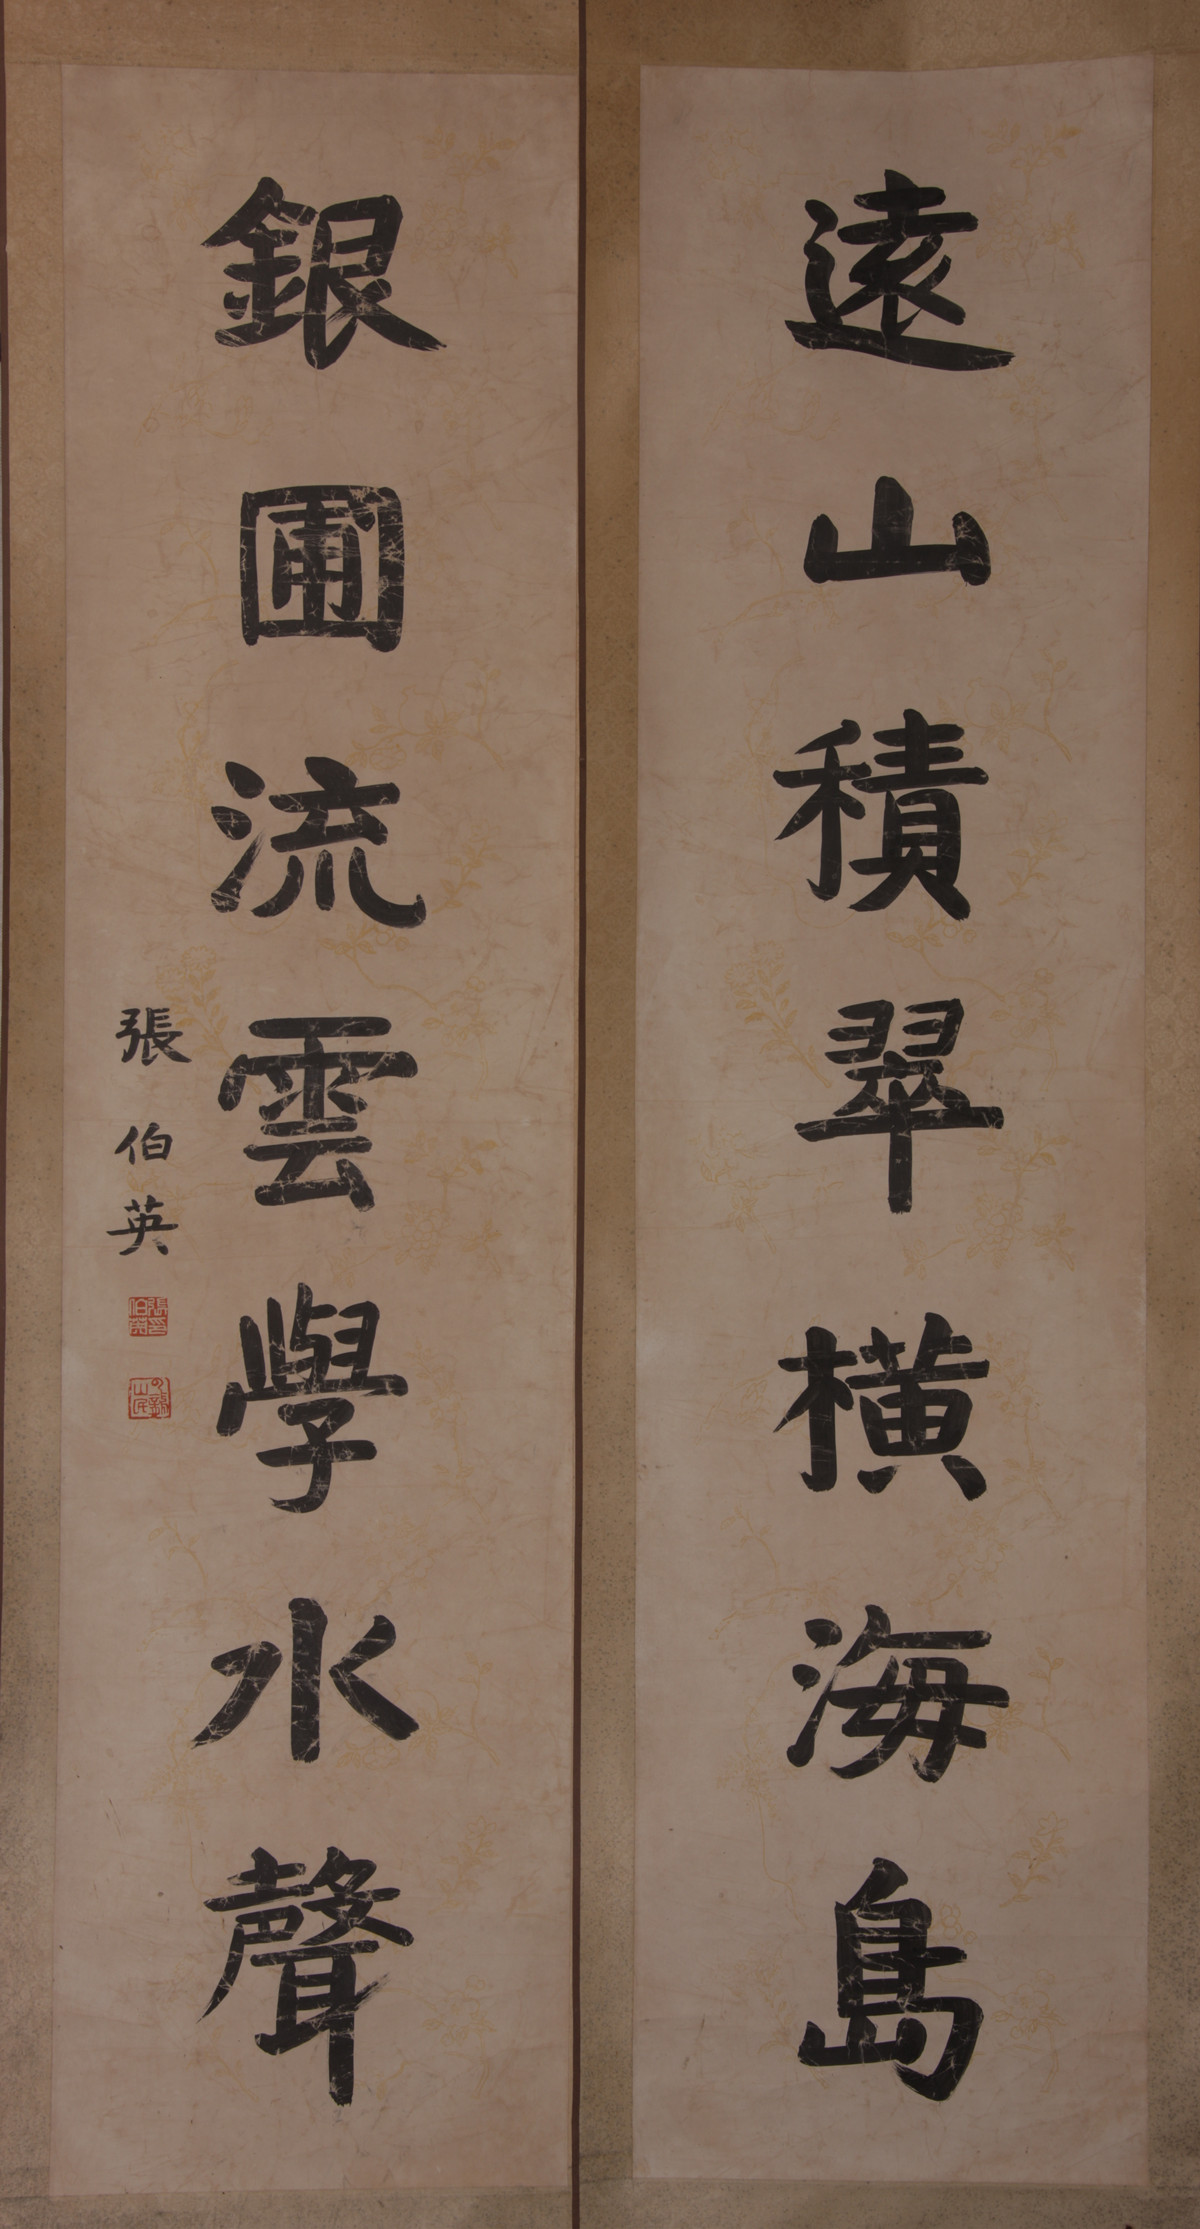 遠山積翠橫海島
銀圃流雲學水聲
張伯英
張伯英印